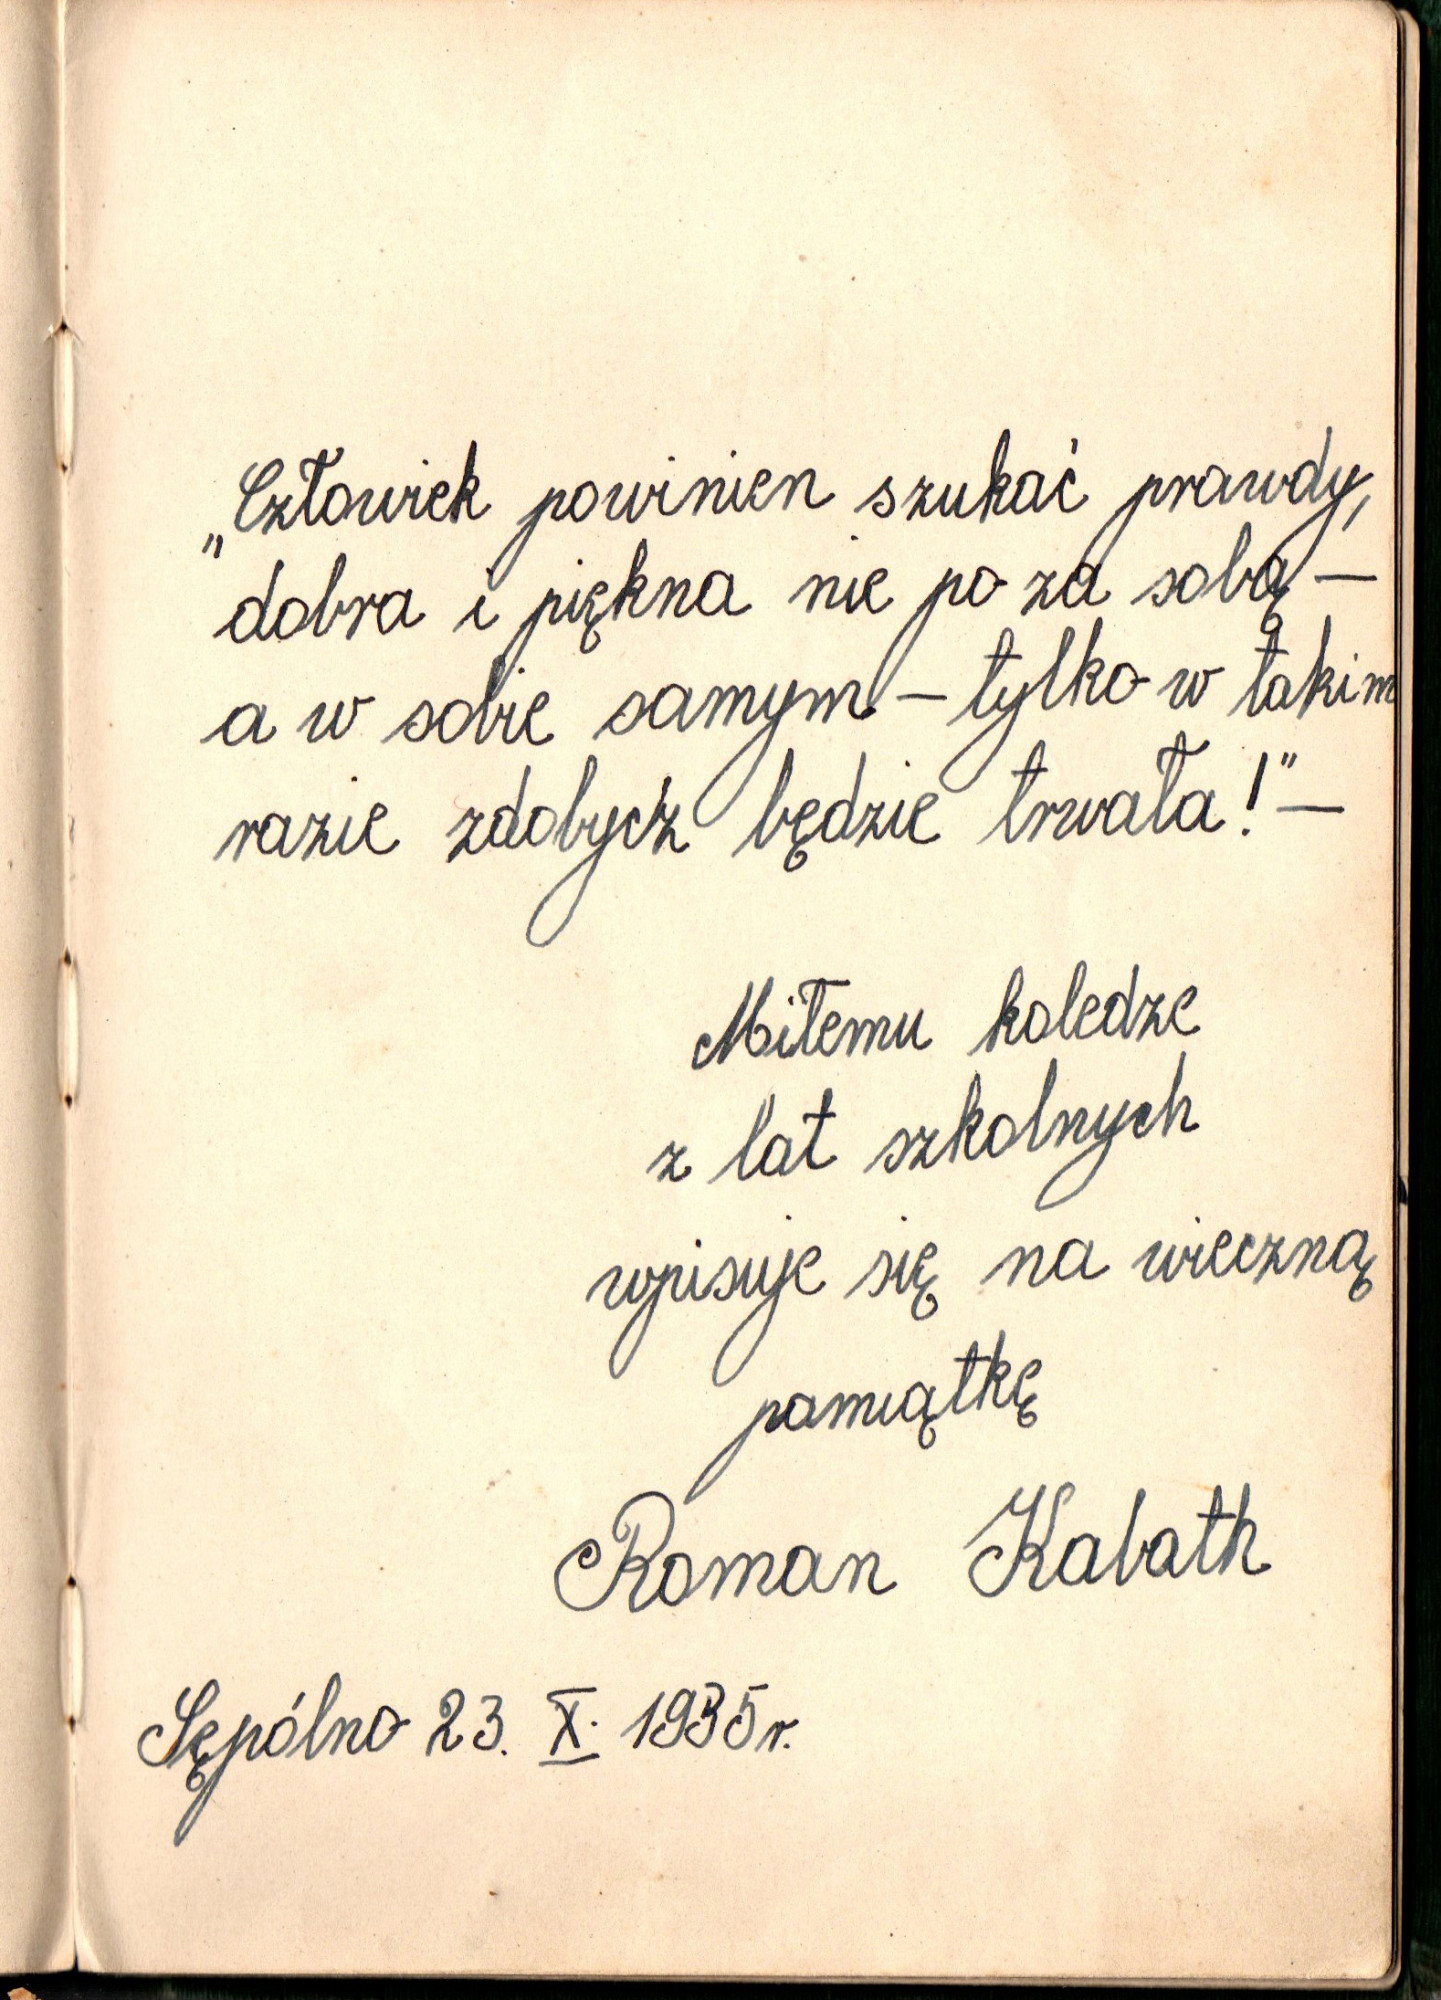 „Człowiek powinien szukać prawdy,
dobra i piękna nie po za sobą —
a w sobie samym — tylko w takim
razie zdobycz będzie trwała!" —
Miłemu koledze
z lat szkolnych
wpisuje się na wieczną
pamiątkę
Roman Kabath
Sępólno 23. X. 1935 r.